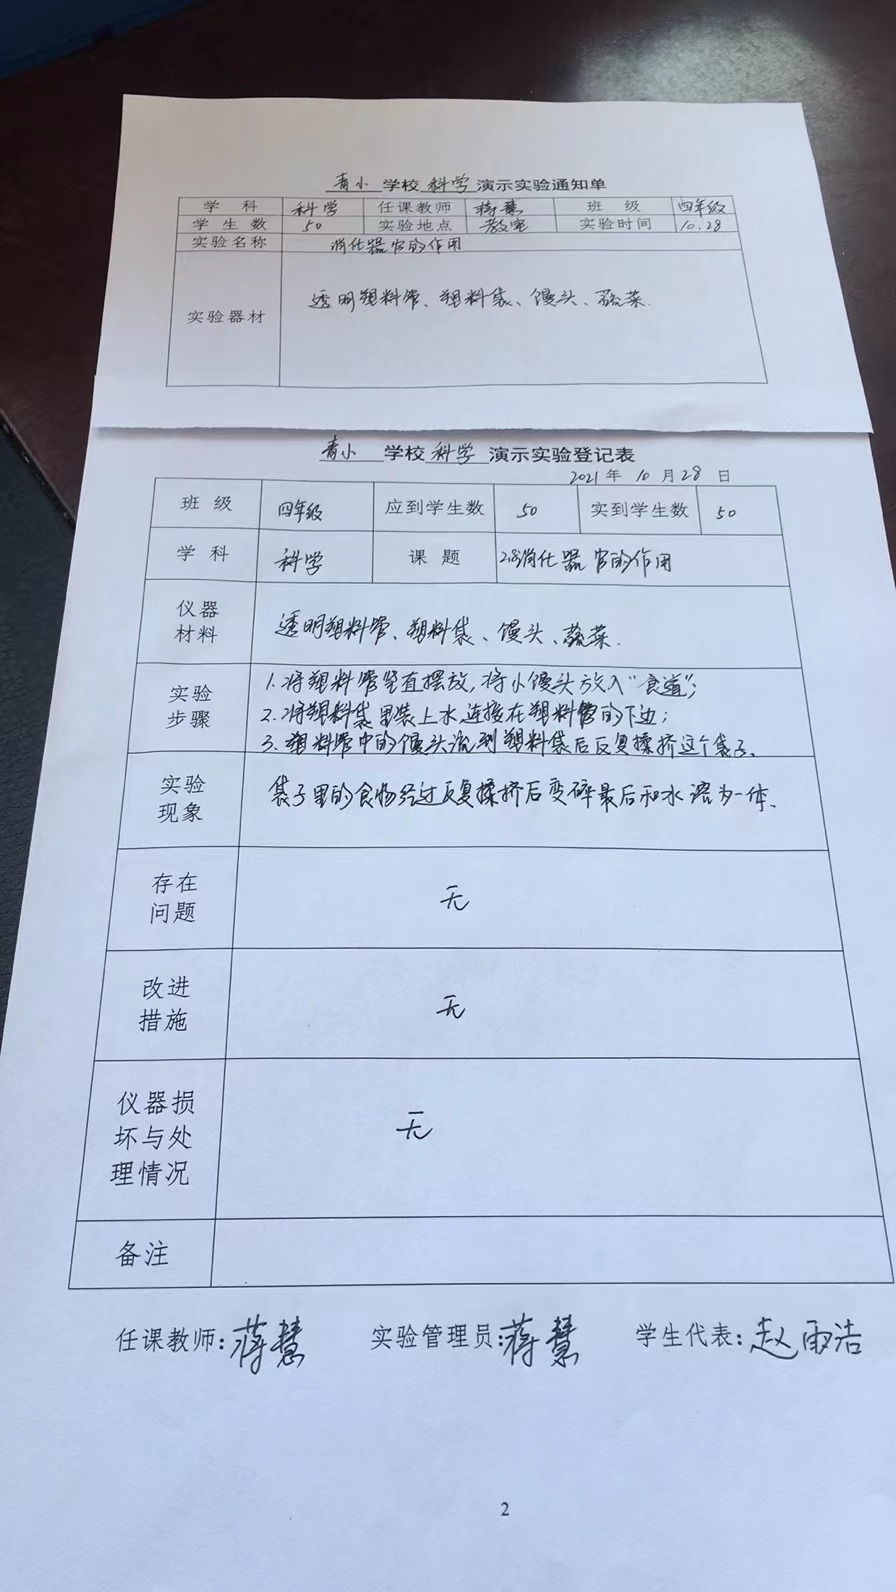 青小 学校 科学 演示实验通知单
学 科 科学 任课教师 蒋慧 班 级 四年级
学 生 数 50 实验地点 教室 实验时间 10.28
实验名称 消化器官的作用
实验器材 透明塑料管、塑料袋、馒头、蔬菜.
青小 学校 科学 演示实验登记表
2021 年 10 月 28 日
班 级 四年级 应到学生数 50 实到学生数 50
学 科 科学 课 题 2.8消化器官的作用
仪器
材料
透明塑料管、塑料袋、馒头、蔬菜.
实验
步骤
1.将塑料管竖直摆放,将小馒头放入“食道”;
2.将塑料袋里装上水,连接在塑料管的下边;
3.塑料管中的馒头流到塑料袋后反复揉挤这个袋子.
实验
现象
袋子里的食物经过反复揉挤后变碎最后和水溶为一体.
存在
问题
无
改进
措施
无
仪器损
坏与处
理情况
无
备注
任课教师:蒋慧 实验管理员:蒋慧 学生代表:赵雨浩
2